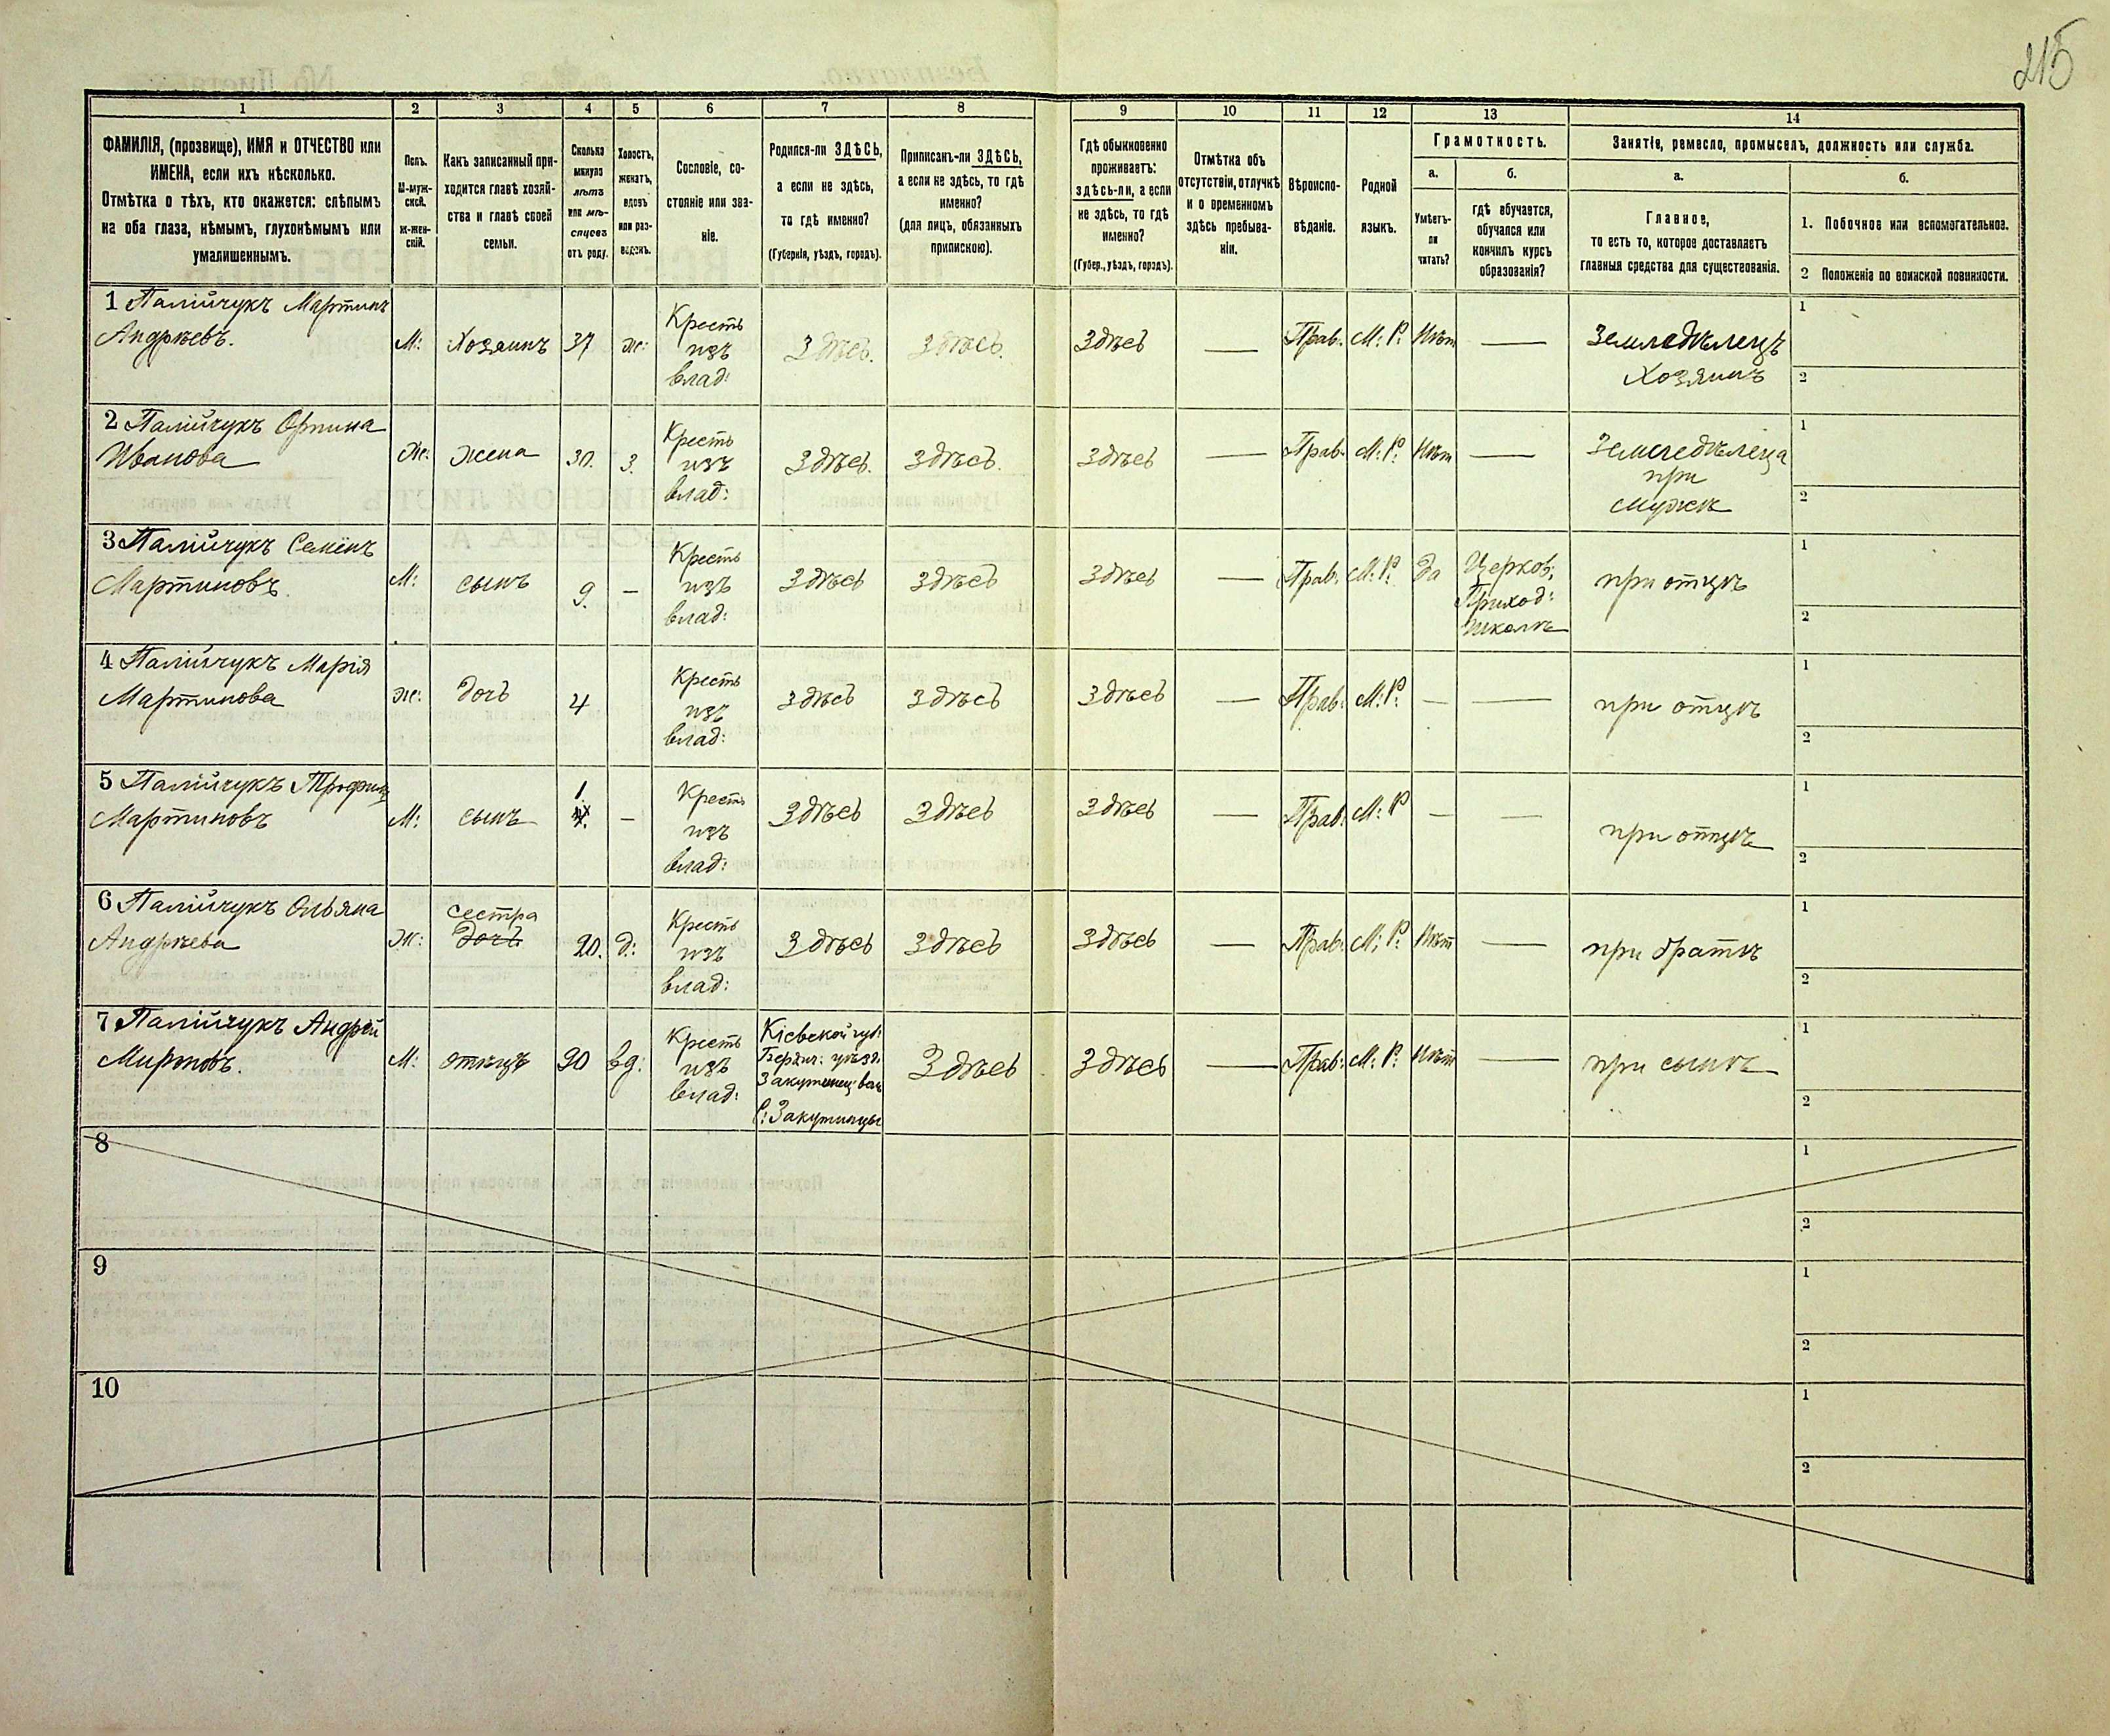 215
1 2 3 4 5 6 7 8 9 10 11 12 13 14
ФАМИЛІЯ, (прозвище), ИМЯ и ОТЧЕСТВО или
ИМЕНА, если ихъ нѣсколько.
Отмѣтка о тѣхъ, кто окажется: слѣпымъ
на оба глаза, нѣмымъ, глухонѣмымъ или
умалишеннымъ.
Полъ.
М-муж-
ской.
Ж-жен-
скій.
Какъ записанный при-
ходится главѣ хозяй-
ства и главѣ своей
семьи.
Сколько
минуло
лѣтъ
или мѣ-
сяцевъ
отъ роду.
Холостъ,
женатъ,
вдовъ
или раз-
веденъ.
Сословіе, со-
стояніе или зва-
ніе.
Родился-ли ЗДѢСЬ,
а если не здѣсь,
то гдѣ именно?
(Губернія, уѣздъ, городъ).
Приписанъ-ли ЗДѢСЬ,
а если не здѣсь, то гдѣ
именно?
(для лицъ, обязанныхъ
припискою).
Гдѣ обыкновенно
проживаетъ:
здѣсь-ли, а если
не здѣсь, то гдѣ
именно?
(Губер., уѣздъ, городъ).
Отмѣтка объ
отсутствіи, отлучкѣ
и о временномъ
здѣсь пребыва-
ніи.
Вѣроиспо-
вѣданіе.
Родной
языкъ.
Грамотность.
а.
Умѣетъ-
ли
читать?
б.
гдѣ обучается,
обучался или
кончилъ курсъ
образованія?
Занятіе, ремесло, промыселъ, должность или служба.
а.
Главное,
то есть то, которое доставляетъ
главныя средства для существованія.
б.
1. Побочное или вспомогательное.
2 Положеніе по воинской повинности.
1 Палійчукъ Мартинъ
Андрѣевъ.
М: Хозяинъ 37 ж:
Кресть
изъ
влад:
Здѣсь. Здѣсь. Здѣсь — Прав. М: Р: Нѣт —
Земледѣлецъ
Хозяинъ
1
2
2 Палійчукъ Орпина
Иванова
Ж: жена 30. З.
Кресть
изъ
влад:
Здѣсь. Здѣсь. Здѣсь — Прав. М: Р: Нѣт —
Земледѣлеца
при
мужѣ
1
2
3 Палійчукъ Семенъ
Мартиновъ.
М: сынъ 9. —
Кресть
изъ
влад:
Здѣсь Здѣсь Здѣсь — Прав: М: Р: да
Церков:
Приход:
школѣ
при отцѣ
1
2
4 Палійчукъ Марія
Мартинова
ж: дочь 4
Кресть
изъ
влад:
Здѣсь Здѣсь Здѣсь — Прав: М: Р: — —
при отцѣ
1
2
5 Палійчукъ Трофимъ
Мартиновъ
М: сынъ 1. —
Кресть
изъ
влад:
Здѣсь Здѣсь Здѣсь — Прав: М: Р — —
при отцѣ
1
2
6 Палійчукъ Ольяна
Андрѣева
Ж:
сестра
дочь
20. д:
Кресть
изъ
влад:
Здѣсь Здѣсь Здѣсь — Прав: М: Р: Нѣт —
при братѣ
1
2
7 Палійчукъ Андрѣй
Мироновъ.
М: отецъ 90 вд:
Кресть
изъ
влад:
Кіевской губ:
Бердич: уѣзд:
Закутинец: вол
С: Закутинцы
Здѣсь Здѣсь — Прав: М: Р: Нѣт —
при сынѣ
1
2
8
1
2
9
1
2
10
1
2